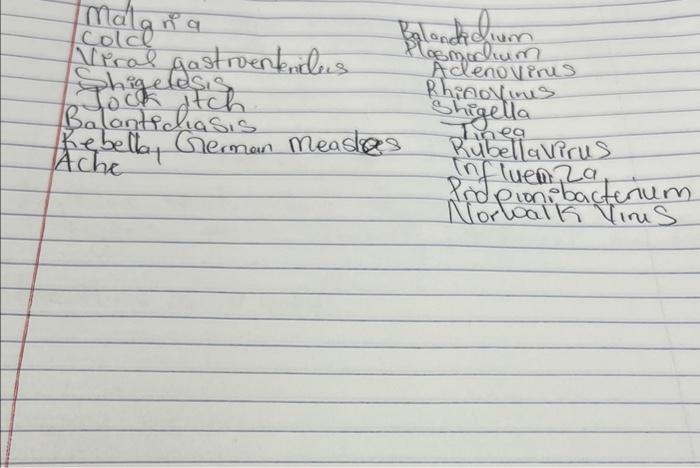 Malaria
Cold
Viral gastroenteritis
Shigelosis
Jock itch
Balantidiasis
Rebella, German measles
Ache
Balantidium
Plasmodium
Adenovirus
Rhinovirus
Shigella
Tinea
Rubellavirus
Influenza
Propionibacterium
Norwalk Virus